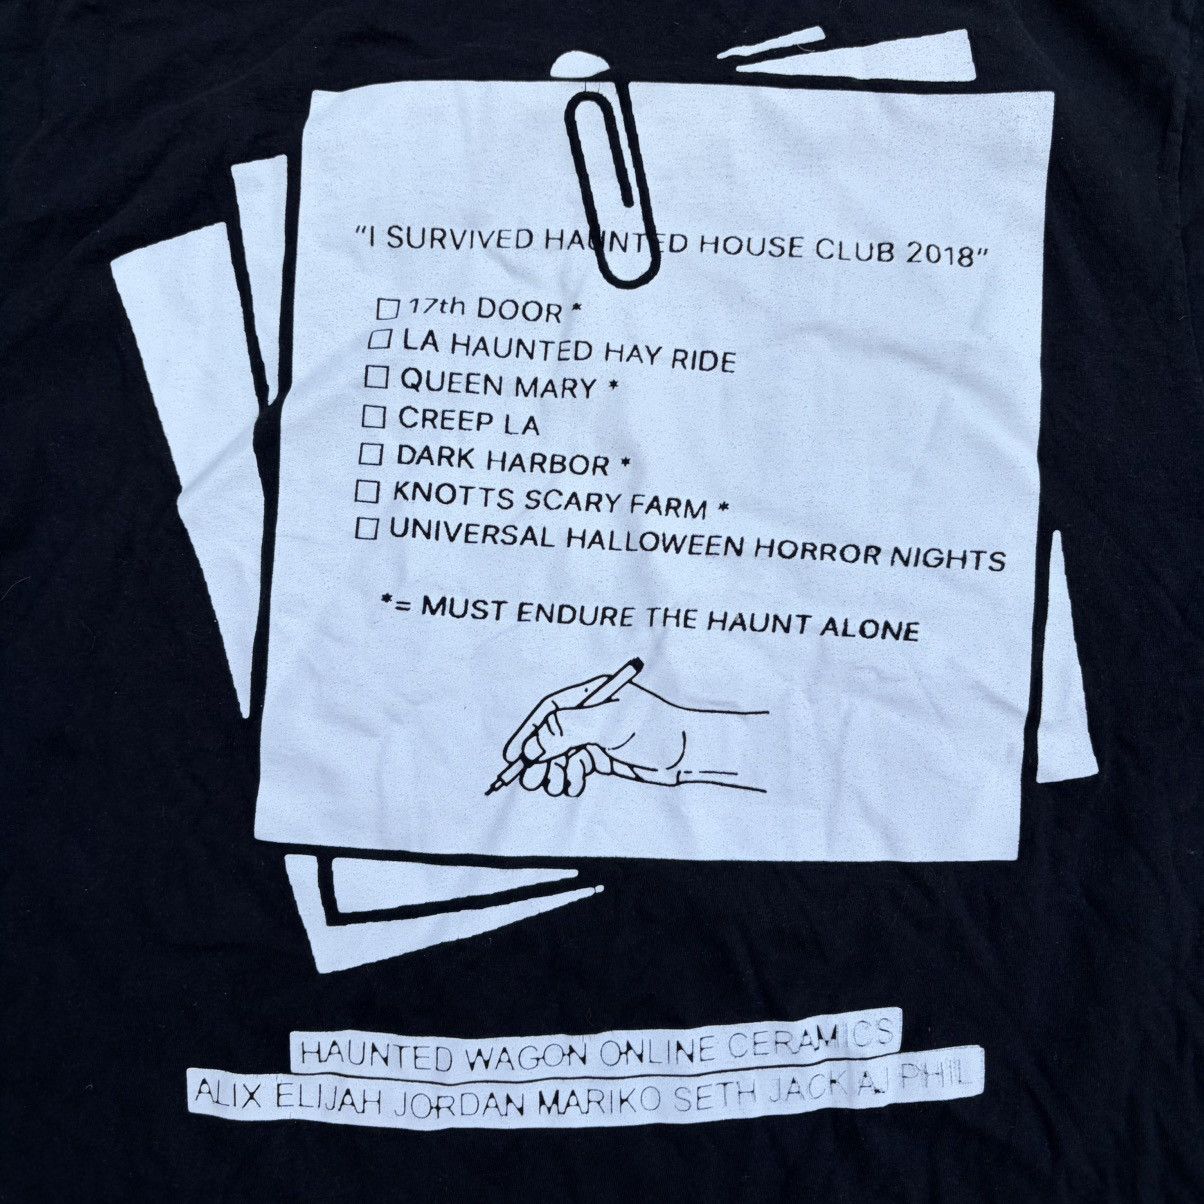 "I SURVIVED HAUNTED HOUSE CLUB 2018"
17th DOOR *
LA HAUNTED HAY RIDE
QUEEN MARY *
CREEP LA
DARK HARBOR *
KNOTTS SCARY FARM *
UNIVERSAL HALLOWEEN HORROR NIGHTS
*= MUST ENDURE THE HAUNT ALONE
HAUNTED WAGON ONLINE CERAMICS
ALIX ELIJAH JORDAN MARIKO SETH JACK AJ PHIL